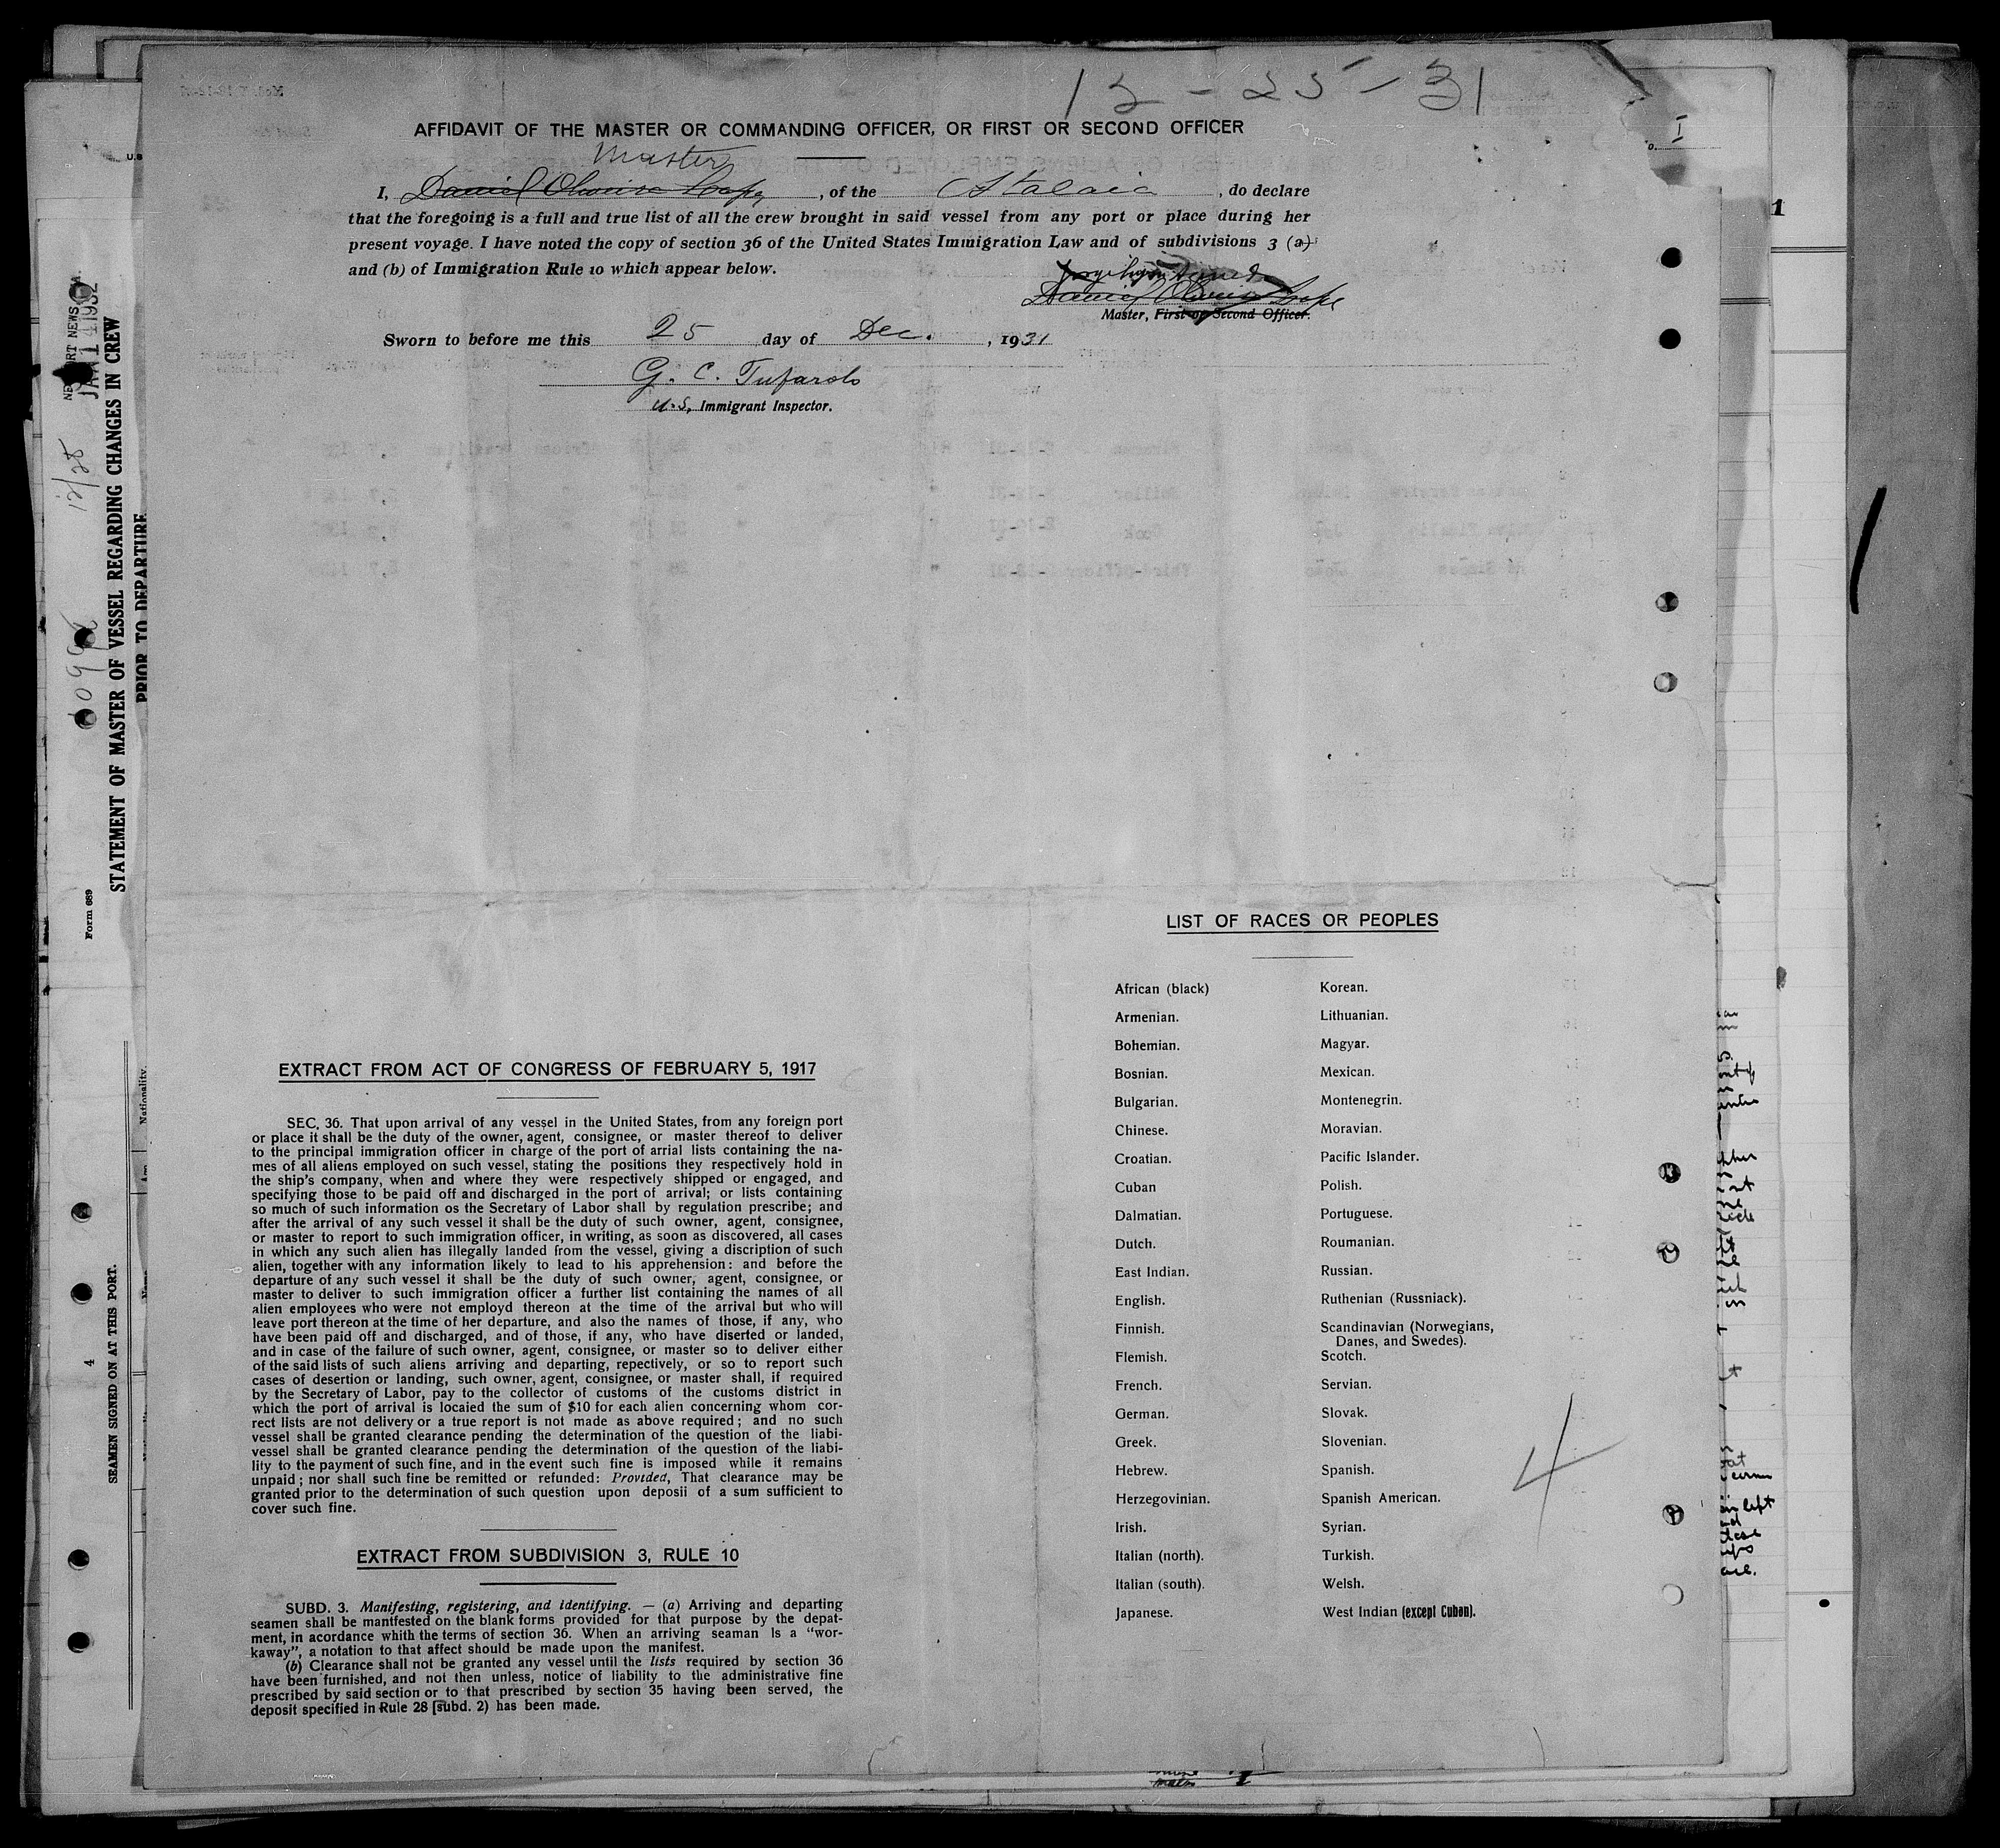 12-25-31
AFFIDAVIT OF THE MASTER OR COMMANDING OFFICER, OR FIRST OR SECOND OFFICER
Master
I, Daniel , of the Atalaia , do declare
that the foregoing is a full and true list of all the crew brought in said vessel from any port or place during her
present voyage. I have noted the copy of section 36 of the United States Immigration Law and of subdivisions 3 (a)
and (b) of Immigration Rule 10 which appear below.
Daniel
Master, First or Second Officer.
Sworn to before me this 25 day of Dec. , 1931
G. C. Tufarolo
U.S, Immigrant Inspector.
LIST OF RACES OR PEOPLES
African (black) Korean.
Armenian. Lithuanian.
Bohemian. Magyar.
Bosnian. Mexican.
Bulgarian. Montenegrin.
Chinese. Moravian.
Croatian. Pacific Islander.
Cuban Polish.
Dalmatian. Portuguese.
Dutch. Roumanian.
East Indian. Russian.
English. Ruthenian (Russniack).
Finnish. Scandinavian (Norwegians,
Danes, and Swedes).
Flemish. Scotch.
French. Servian.
German. Slovak.
Greek. Slovenian.
Hebrew. Spanish.
Herzegovinian. Spanish American.
Irish. Syrian.
Italian (north). Turkish.
Italian (south). Welsh.
Japanese. West Indian (except Cuban).
4
EXTRACT FROM ACT OF CONGRESS OF FEBRUARY 5, 1917
SEC. 36. That upon arrival of any vessel in the United States, from any foreign port
or place it shall be the duty of the owner, agent, consignee, or master thereof to deliver
to the principal immigration officer in charge of the port of arrial lists containing the na-
mes of all aliens employed on such vessel, stating the positions they respectively hold in
the ship's company, when and where they were respectively shipped or engaged, and
specifying those to be paid off and discharged in the port of arrival; or lists containing
so much of such information os the Secretary of Labor shall by regulation prescribe; and
after the arrival of any such vessel it shall be the duty of such owner, agent, consignee,
or master to report to such immigration officer, in writing, as soon as discovered, all cases
in which any such alien has illegally landed from the vessel, giving a discription of such
alien, together with any information likely to lead to his apprehension: and before the
departure of any such vessel it shall be the duty of such owner, agent, consignee, or
master to deliver to such immigration officer a further list containing the names of all
alien employees who were not employd thereon at the time of the arrival but who will
leave port thereon at the time of her departure, and also the names of those, if any, who
have been paid off and discharged, and of those, if any, who have diserted or landed,
and in case of the failure of such owner, agent, consignee, or master so to deliver either
of the said lists of such aliens arriving and departing, repectively, or so to report such
cases of desertion or landing, such owner, agent, consignee, or master shall, if required
by the Secretary of Labor, pay to the collector of customs of the customs district in
which the port of arrival is locaied the sum of $10 for each alien concerning whom cor-
rect lists are not delivery or a true report is not made as above required; and no such
vessel shall be granted clearance pending the determination of the question of the liabi-
vessel shall be granted clearance pending the determination of the question of the liabi-
lity to the payment of such fine, and in the event such fine is imposed while it remains
unpaid; nor shall such fine be remitted or refunded: Provided, That clearance may be
granted prior to the determination of such question upon deposii of a sum sufficient to
cover such fine.
EXTRACT FROM SUBDIVISION 3, RULE 10
SUBD. 3. Manifesting, registering, and identifying. — (a) Arriving and departing
seamen shall be mantfested on the blank forms provided for that purpose by the depat-
ment, in acordance whith the terms of section 36. When an arriving seaman Is a "wor-
kaway", a notation to that affect should be made upon the manifest.
(b) Clearance shall not be granted any vessel until the lists required by section 36
have been furnished, and not then unless, notice of liability to the administrative fine
prescribed by said section or to that prescribed by section 35 having been served, the
deposit specified in Rule 28 [subd. 2) has been made.
STATEMENT OF MASTER OF VESSEL REGARDING CHANGES IN CREW
PRIOR TO DEPARTURE
Form 689
12/28
JAN 14 1932
SEAMEN SIGNED ON AT THIS PORT.
4
Nationality.
1